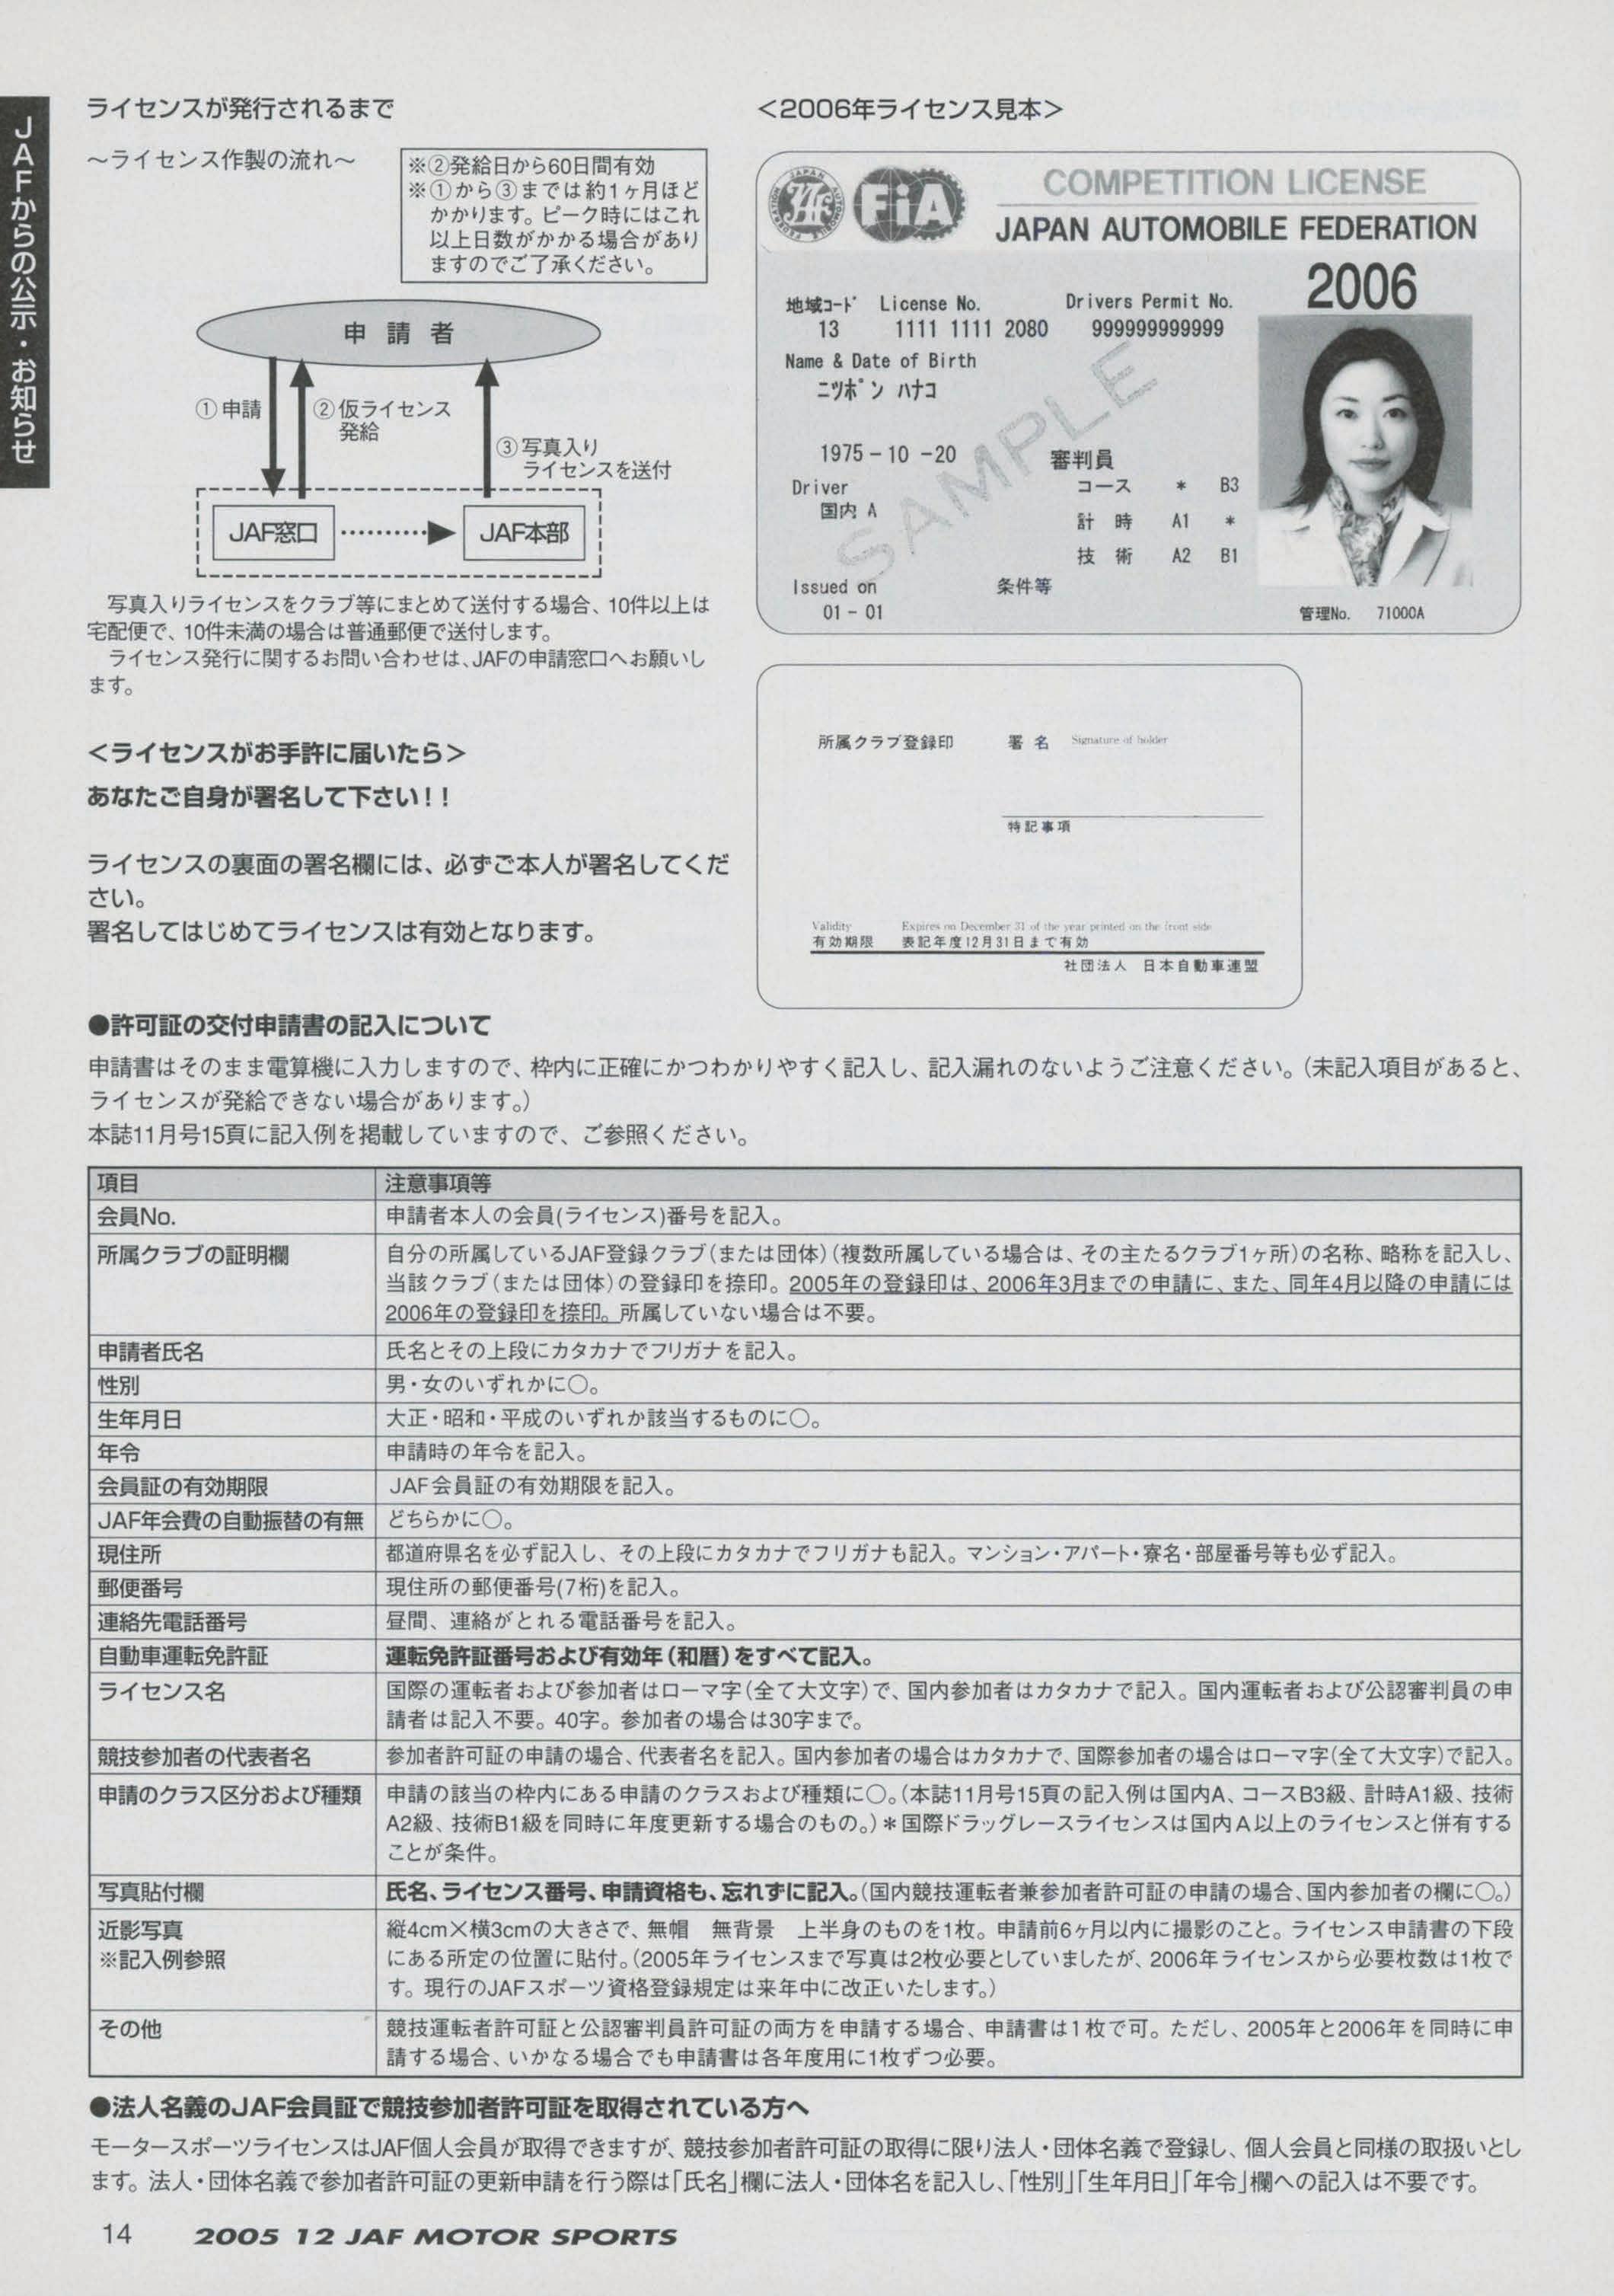 JAFからの公示・お知らせ
ライセンスが発行されるまで
〜ライセンス作製の流れ〜
※②発給日から60日間有効
※①から③までは約1ヶ月ほど
かかります。ピーク時にはこれ
以上日数がかかる場合があり
ますのでご了承ください。
申 請 者
①申請
②仮ライセンス
発給
③写真入り
ライセンスを送付
JAF窓口
JAF本部
写真入りライセンスをクラブ等にまとめて送付する場合、10件以上は
宅配便で、10件未満の場合は普通郵便で送付します。
ライセンス発行に関するお問い合わせは、JAFの申請窓口へお願いし
ます。
＜ライセンスがお手許に届いたら＞
あなたご自身が署名して下さい！！
ライセンスの裏面の署名欄には、必ずご本人が署名してくだ
さい。
署名してはじめてライセンスは有効となります。
＜2006年ライセンス見本＞
JAPAN AUTOMOBILE FEDERATION
JAF
FiA
COMPETITION LICENSE
JAPAN AUTOMOBILE FEDERATION
2006
地域ｺｰﾄﾞ License No. Drivers Permit No.
13 1111 1111 2080 999999999999
Name & Date of Birth
ニツポン ハナコ
1975－10－20
審判員
Driver
国内 A
コース ＊ B3
計 時 A1 ＊
技 術 A2 B1
SAMPLE
Issued on 条件等
01－01
管理No. 71000A
所属クラブ登録印 署 名 Signature of holder
特記事項
Validity Expires on December 31 of the year printed on the front side
有効期限 表記年度12月31日まで有効
社団法人 日本自動車連盟
●許可証の交付申請書の記入について
申請書はそのまま電算機に入力しますので、枠内に正確にかつわかりやすく記入し、記入漏れのないようご注意ください。（未記入項目があると、
ライセンスが発給できない場合があります。）
本誌11月号15頁に記入例を掲載していますので、ご参照ください。
項目 注意事項等
会員No. 申請者本人の会員(ライセンス)番号を記入。
所属クラブの証明欄 自分の所属しているJAF登録クラブ（または団体）（複数所属している場合は、その主たるクラブ1ヶ所）の名称、略称を記入し、
当該クラブ（または団体）の登録印を捺印。2005年の登録印は、2006年3月までの申請に、また、同年4月以降の申請には
2006年の登録印を捺印。所属していない場合は不要。
申請者氏名 氏名とその上段にカタカナでフリガナを記入。
性別 男・女のいずれかに○。
生年月日 大正・昭和・平成のいずれか該当するものに○。
年令 申請時の年令を記入。
会員証の有効期限 JAF会員証の有効期限を記入。
JAF年会費の自動振替の有無 どちらかに○。
現住所 都道府県名を必ず記入し、その上段にカタカナでフリガナも記入。マンション・アパート・寮名・部屋番号等も必ず記入。
郵便番号 現住所の郵便番号(7桁)を記入。
連絡先電話番号 昼間、連絡がとれる電話番号を記入。
自動車運転免許証 運転免許証番号および有効年（和暦）をすべて記入。
ライセンス名 国際の運転者および参加者はローマ字（全て大文字）で、国内参加者はカタカナで記入。国内運転者および公認審判員の申
請者は記入不要。40字。参加者の場合は30字まで。
競技参加者の代表者名 参加者許可証の申請の場合、代表者名を記入。国内参加者の場合はカタカナで、国際参加者の場合はローマ字（全て大文字）で記入。
申請のクラス区分および種類 申請の該当の枠内にある申請のクラスおよび種類に○。（本誌11月号15頁の記入例は国内A、コースB3級、計時A1級、技術
A2級、技術B1級を同時に年度更新する場合のもの。）＊国際ドラッグレースライセンスは国内A以上のライセンスと併有する
ことが条件。
写真貼付欄 氏名、ライセンス番号、申請資格も、忘れずに記入。（国内競技運転者兼参加者許可証の申請の場合、国内参加者の欄に○。）
近影写真 縦4cm×横3cmの大きさで、無帽 無背景 上半身のものを1枚。申請前6ヶ月以内に撮影のこと。ライセンス申請書の下段
※記入例参照 にある所定の位置に貼付。（2005年ライセンスまで写真は2枚必要としていましたが、2006年ライセンスから必要枚数は1枚で
す。現行のJAFスポーツ資格登録規定は来年中に改正いたします。）
その他 競技運転者許可証と公認審判員許可証の両方を申請する場合、申請書は1枚で可。ただし、2005年と2006年を同時に申
請する場合、いかなる場合でも申請書は各年度用に1枚ずつ必要。
●法人名義のJAF会員証で競技参加者許可証を取得されている方へ
モータースポーツライセンスはJAF個人会員が取得できますが、競技参加者許可証の取得に限り法人・団体名義で登録し、個人会員と同様の取扱いとし
ます。法人・団体名義で参加者許可証の更新申請を行う際は「氏名」欄に法人・団体名を記入し、「性別」「生年月日」「年令」欄への記入は不要です。
14 2005 12 JAF MOTOR SPORTS